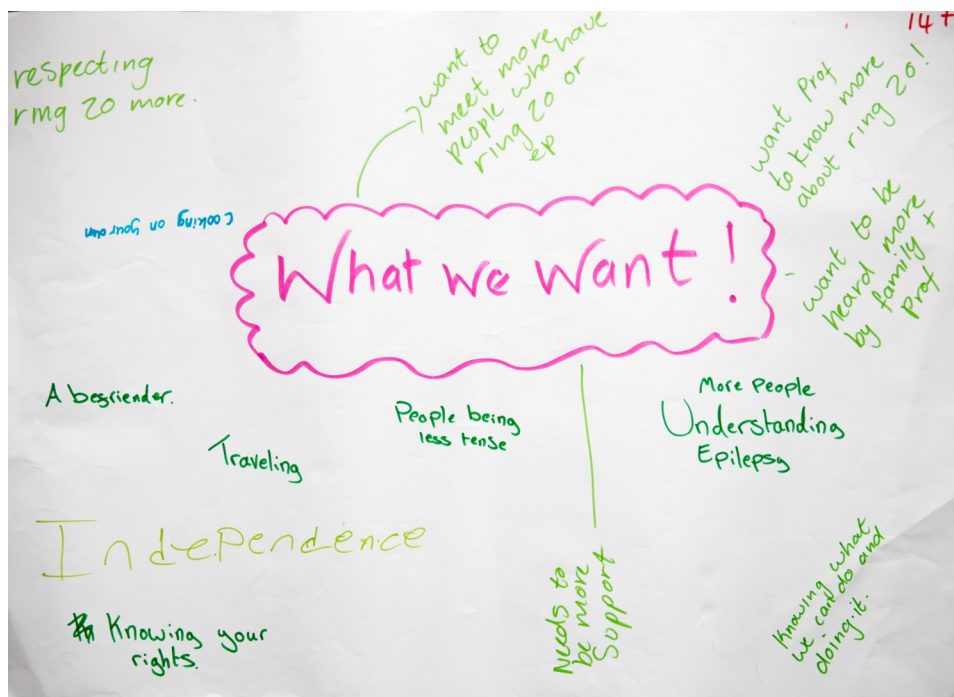 14+
respecting
ring 20 more.
want to
meet more
people who have
ring 20 or
ep
want Prof
to know more
about ring 20!
Cooking on your own
What we want!
want to be
heard more
by family +
Prof
A befriender.
People being
less tense
More People
Understanding
Epilepsy
Traveling
Independence
Needs to
be more
Support
Knowing what
we can do and
doing it.
Knowing your
rights.